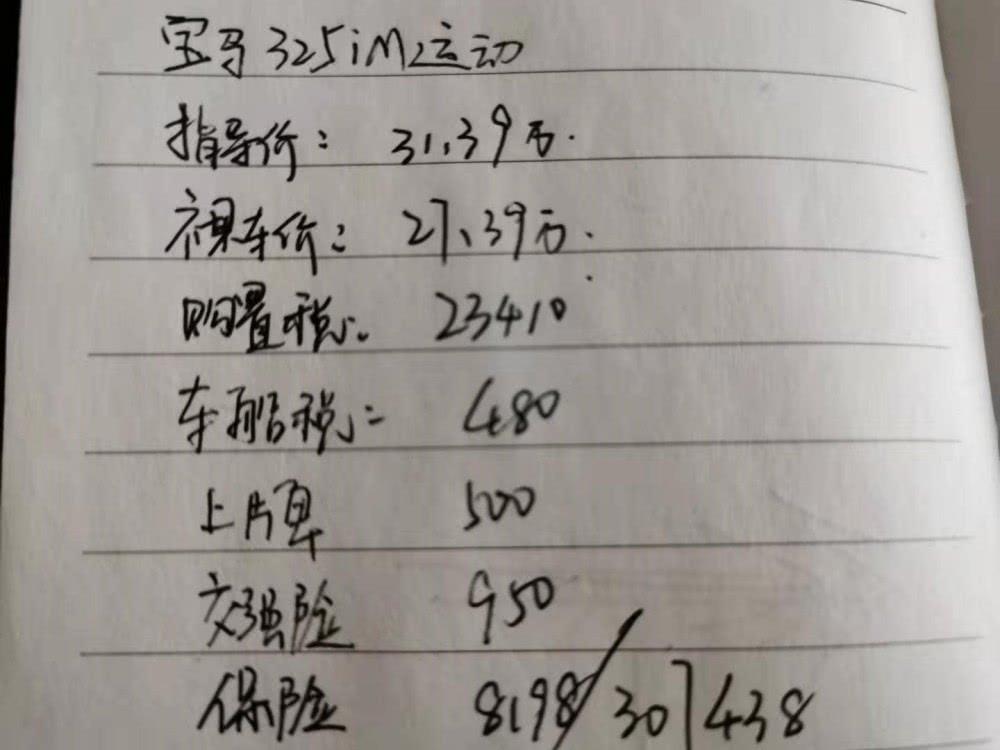 宝马325iM运动
指导价: 31.39万.
裸车价: 27.39万.
购置税: 23410
车船税: 480
上牌 500
交强险 950
保险 8198/307438